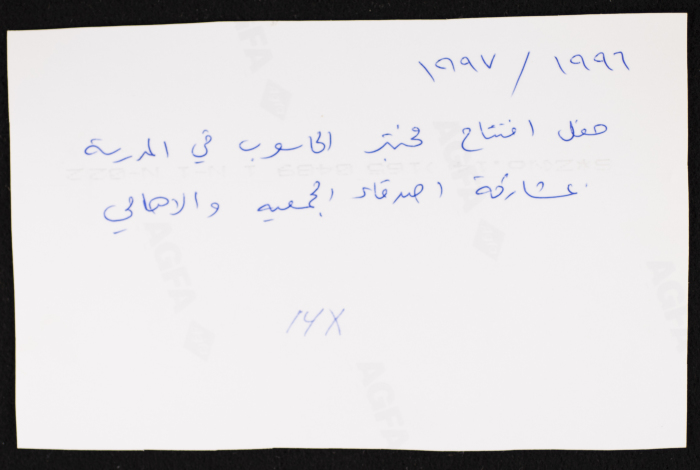 ١٩٩٦ / ١٩٩٧
حفل افتتاح مختبر الحاسوب في المدرسة
بمشاركة اصدقاء الجمعيه والاهالي
14X
AGFA
AGFA
AGFA
AGFA
AGFA